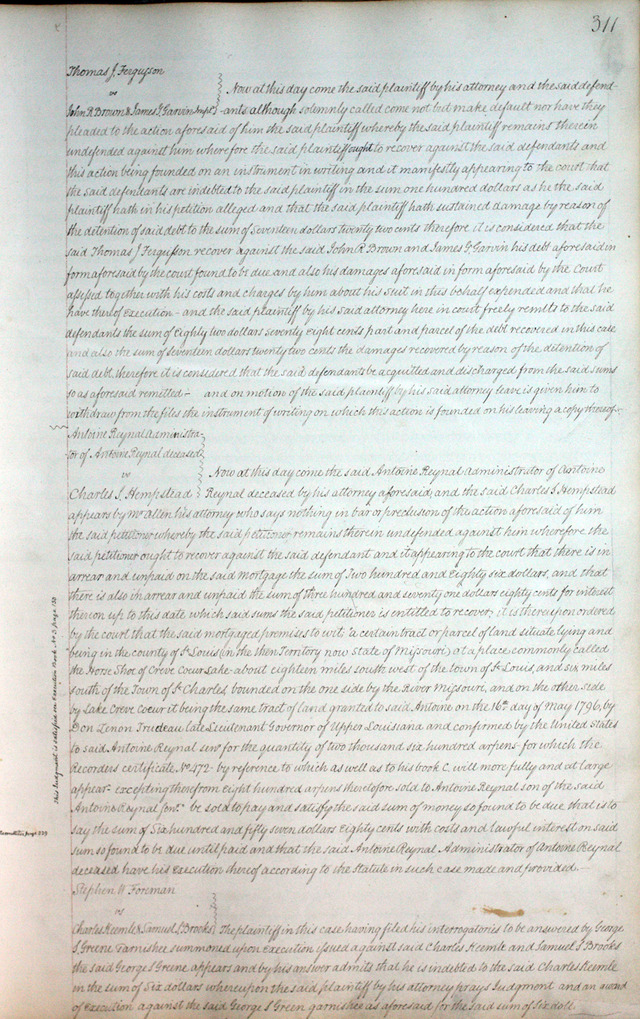 311
Thomas J. Fergusson
vs
John R Brown & James G Garvin Impl.d
Now at this day come the said plaintiff by his attorney and the said defend-
-ants although solemnly called come not but make default nor have they
pleaded to the action aforesaid of him the said plaintiff whereby the said plaintiff remains therein
undefended against him wherefore the said plaintiff ought to recover against the said defendants and
this action being founded on an instrument in writing and it manifestly appearing to the court that
the said defendants are indebted to the said plaintiff in the sum one hundred dollars as he the said
plaintiff hath in his petition alleged and that the said plaintiff hath sustained damage by reason of
the detention of said debt to the sum of Seventeen dollars twenty two cents therefore it is considered that the
said Thomas J Fergusson recover against the said John R Brown and James G Garvin his debt aforesaid in
form aforesaid by the court found to be due and also his damages aforesaid in form aforesaid by the court
assessed together with his costs and charges by him about his suit in this behalf expended and that he
have thereof execution - and the said plaintiff by his said attorney here in court freely remits to the said
defendants the sum of Eighty two dollars seventy eight cents part and parcel of the debt recovered in this case
and also the sum of seventeen dollars twenty two cents the damages recovered by reason of the detention of
said debt, therefore it is considered that the said defendants be acquitted and discharged from the said sums
so as aforesaid remitted - and on motion of the said plaintiff by his said attorney leave is given him to
withdraw from the files the instrument of writing on which this action is founded on his leaving a copy thereof.
Antoine Reynal Administra-
tor of Antoine Reynal deceased
vs
Charles S. Hempstead
Now at this day come the said Antoine Reynal Administrator of Antoine
Reynal deceased by his attorney aforesaid, and the said Charles S Hempstead
appears by Mr Allen his attorney who says nothing in bar or preclusion of the action aforesaid of him
the said petitioner whereby the said petitioner remains therein undefended against him wherefore the
said petitioner ought to recover against the said defendant and it appearing to the court that there is in
arrear and unpaid on the said mortgage the sum of Two hundred and Eighty six dollars, and that
there is also in arrear and unpaid the sum of three hundred and seventy one dollars eighty cents for interest
thereon up to this date which said sums the said petitioner is entitled to recover, it is thereupon ordered
by the court that the said mortgaged premises to wit "a certain tract or parcel of land situate lying and
being in the county of St Louis (in the then Territory now State of Missouri) at a place commonly called
the Horse Shoe of Creve Coeur Lake about eighteen miles south west of the town of St Louis, and six miles
south of the Town of St Charles bounded on the one side by the River Missouri, and on the other side
by Lake Creve Coeur it being the same tract of land granted to said Antoine on the 16th day of May 1796, by
Don Zenon Trudeau late Lieutenant Governor of Upper Louisiana and confirmed by the United States
to said Antoine Reynal senr for the quantity of two thousand six hundred arpens - for which the
Recorders certificate No 472 - by reference to which as well as to his book C. will more fully and at large
appear - excepting therefrom eight hundred arpens theretofore sold to Antoine Reynal son of the said
Antoine Reynal senr be sold to pay and satisfy the said sum of money so found to be due, that is to
say the sum of Six hundred and fifty seven dollars eighty cents with costs and lawful interest on said
sum so found to be due until paid and that the said Antoine Reynal Administrator of Antoine Reynal
deceased have his execution thereof according to the Statute in such case made and provided. -
This Judgment is satisfied on Execution Book page
Execution page
Stephen W Foreman
vs
Charles Keemle & Samuel S Brooks
The plaintiff in this case having filed his interrogatories to be answered by George
S. Greene Garnishee summoned upon execution issued against said Charles Keemle and Samuel S Brooks
the said George S Greene appears and by his answer admits that he is indebted to the said Charles Keemle
in the sum of six dollars whereupon the said plaintiff by his attorney prays Judgment and an award
of execution against the said George S Green garnishee as aforesaid for the said sum of six doll.